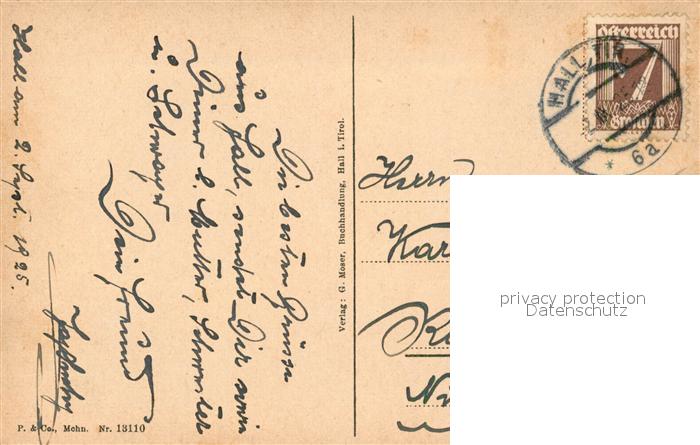 Hall am 2. Sept. 1925.
Die besten Grüsse
aus Hall, sendet Dir wie
Deiner l. Mutter, Schwester
u. Schwager
Dein Freund
Verlag: G. Moser, Buchhandlung, Hall i. Tirol.
P. & Co., Mchn. Nr. 13110
Österreich
7
Groschen
HALL, TIR.
* 6a
Herrn
Kar
privacy protection
Datenschutz